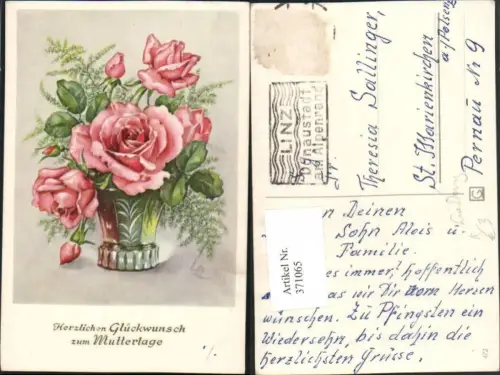 Herzlichen Glückwunsch
zum Muttertage
LINZ
Donaustadt
am Alpenrand
Theresia Sallinger,
St. Marienkirchen
a/Polsenz
Pernau Nr 9
G
Artikel Nr.
371065
Deinen
Sohn Alois u.
Familie.
es immer, hoffentlich
as wir Dir vom Herzen
wünschen. Zu Pfingsten ein
Wiedersehn, bis dahin die
herzlichsten Grüsse.